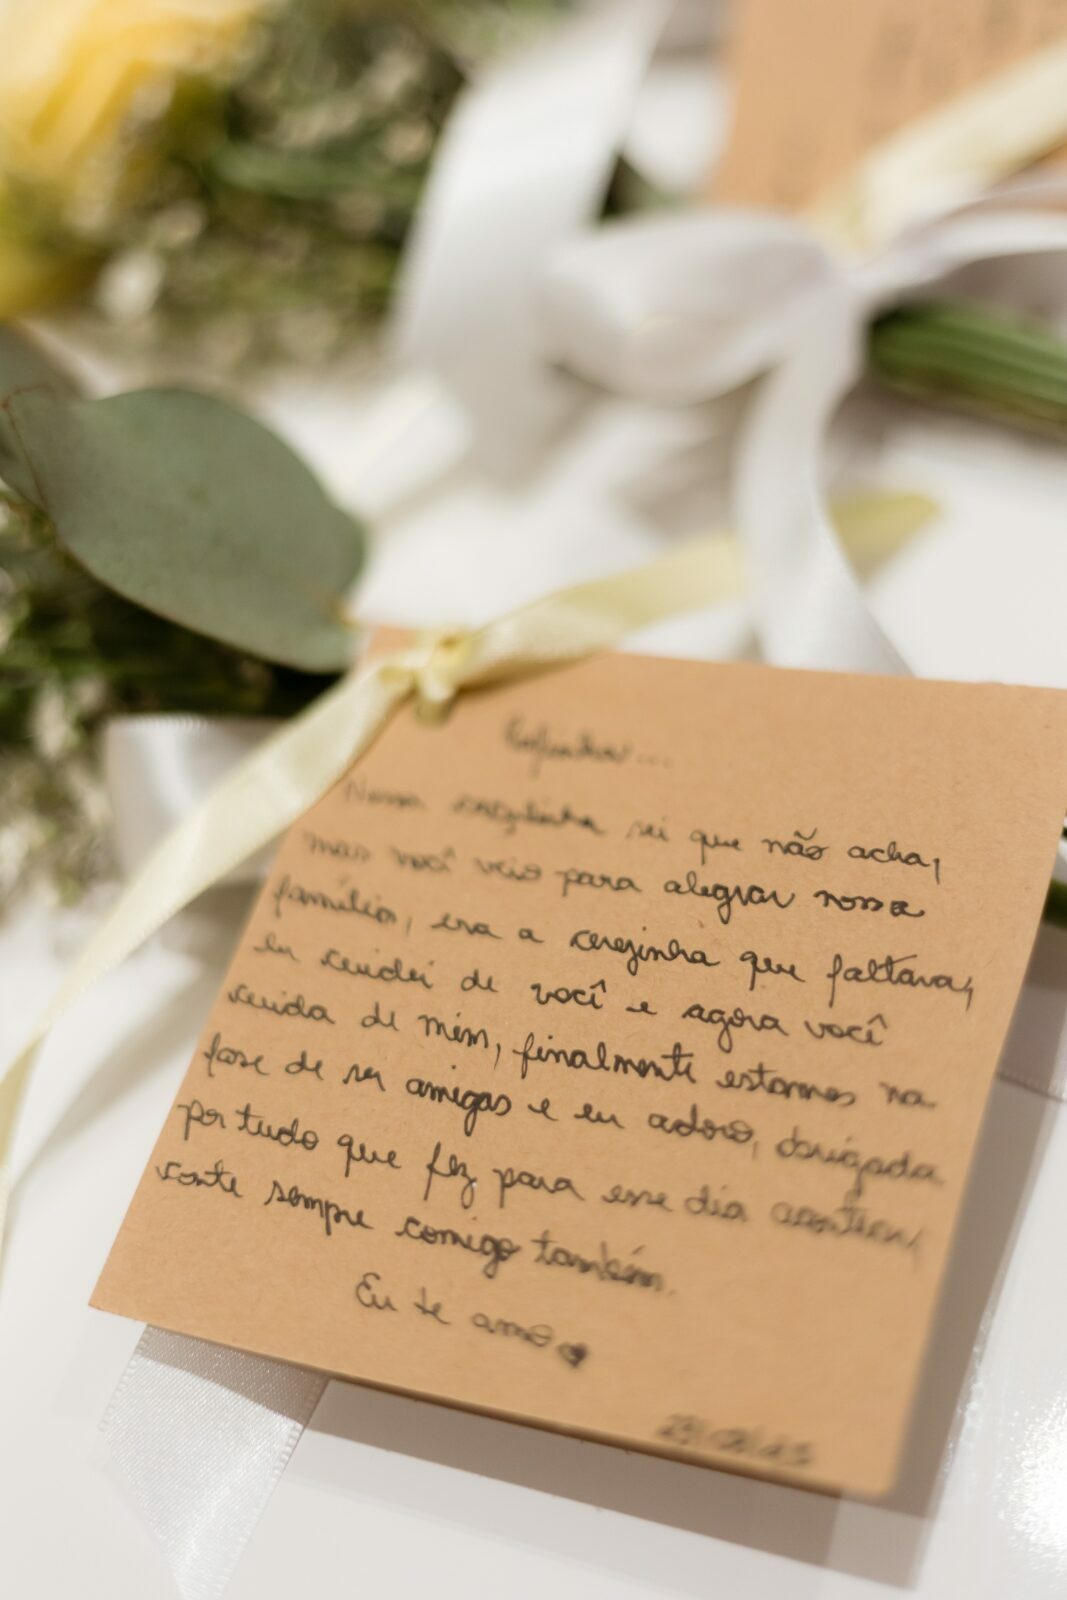 sei que não acha,
mas você veio para alegrar nossa
família, era a cerejinha que faltava,
eu cuidei de você e agora você
cuida de mim, finalmente estamos na
fase de ser amigas e eu adoro, obrigada
por tudo que fez para esse dia acontecer,
conte sempre comigo também.
Eu te amo